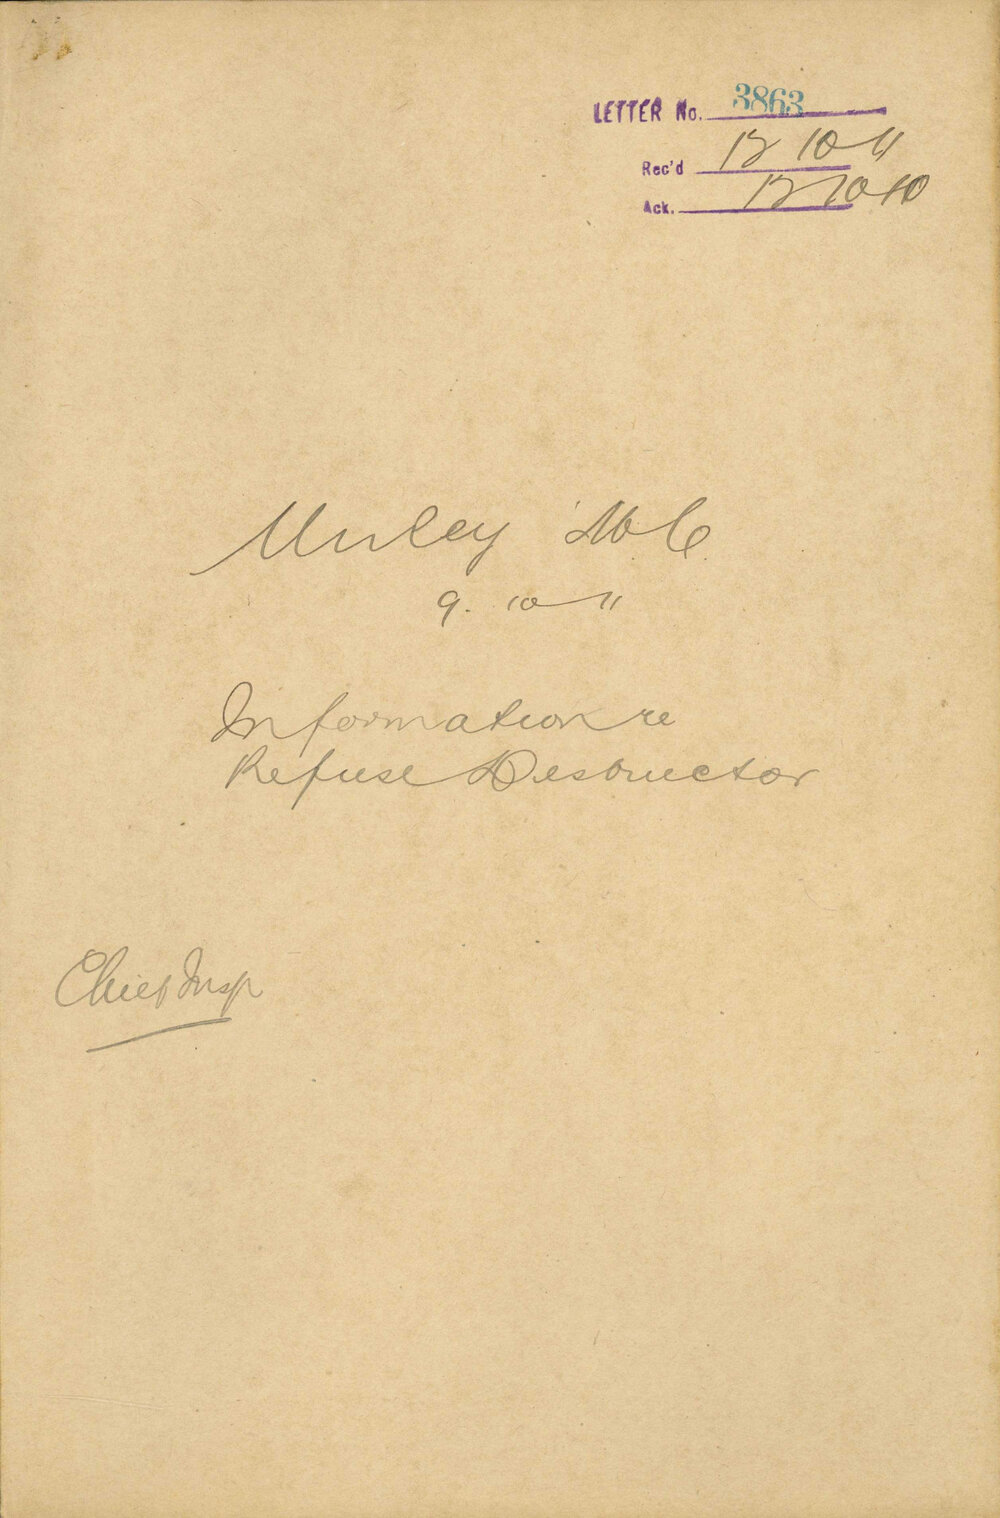 LETTER No. 3863
Rec'd 12 10 11
Ack. 12 10
9. 10 11
Information re
Refuse Destructor
Chief Insp